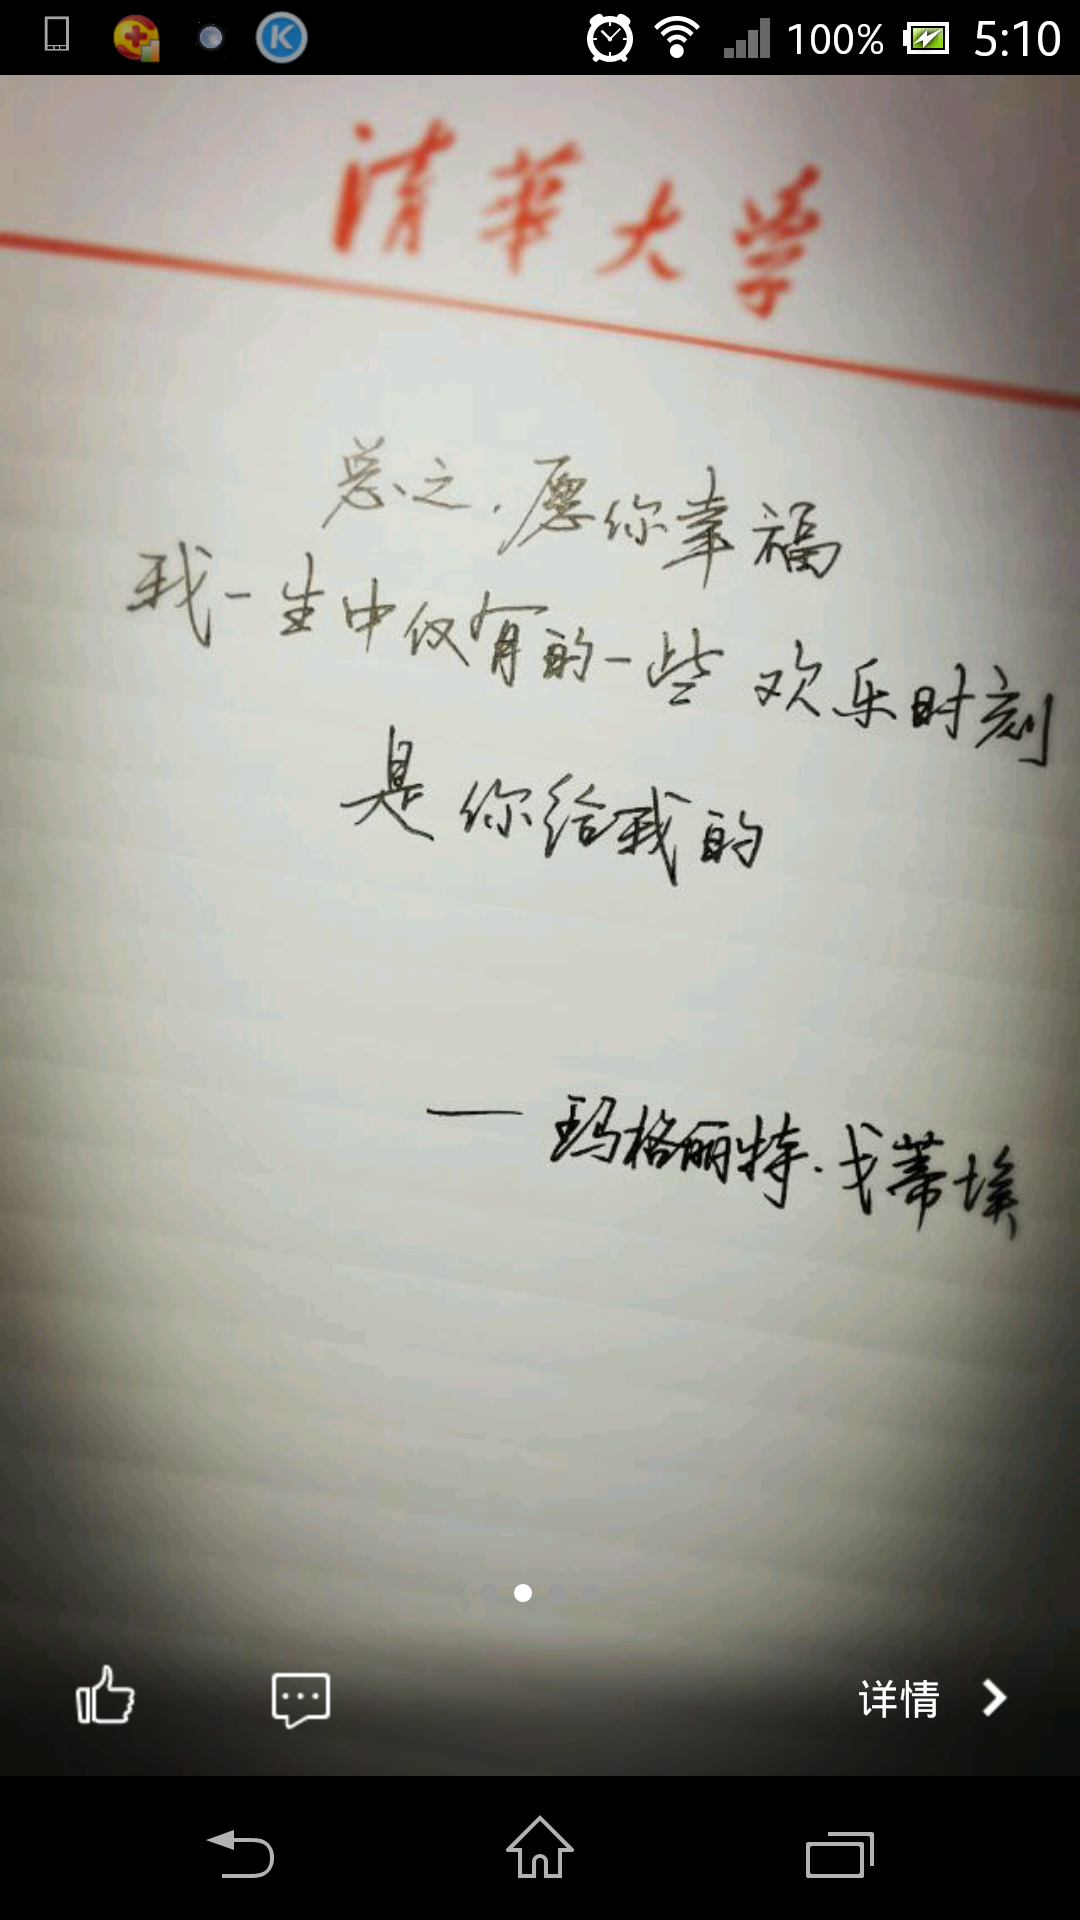 100% 5:10
清華大学
总之.愿你幸福
我一生中仅有的一些欢乐时刻
是你给我的
——玛格丽特.戈蒂埃
详情